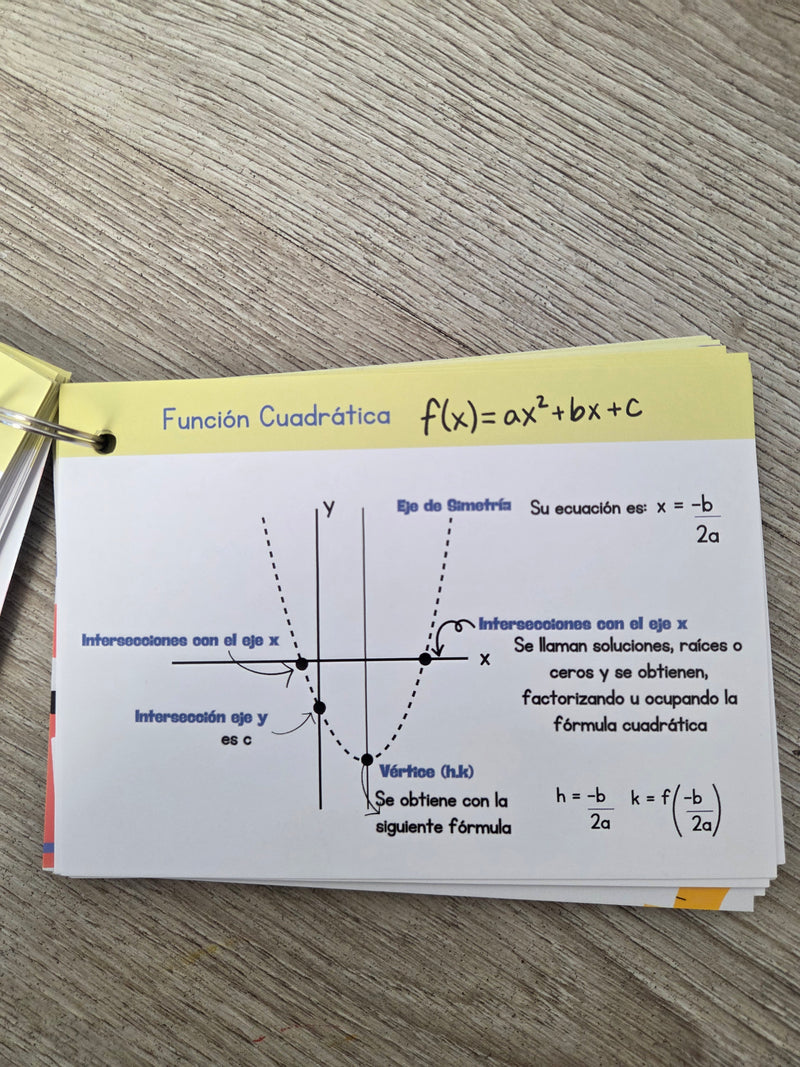 Función Cuadrática f(x)=ax²+bx+c
y
Eje de Simetría Su ecuación es: x = -b/2a
Intersecciones con el eje x
x
Intersecciones con el eje x
Se llaman soluciones, raíces o
ceros y se obtienen,
factorizando u ocupando la
fórmula cuadrática
Intersección eje y
es c
Vértice (h.k)
Se obtiene con la
siguiente fórmula
h = -b/2a k = f(-b/2a)